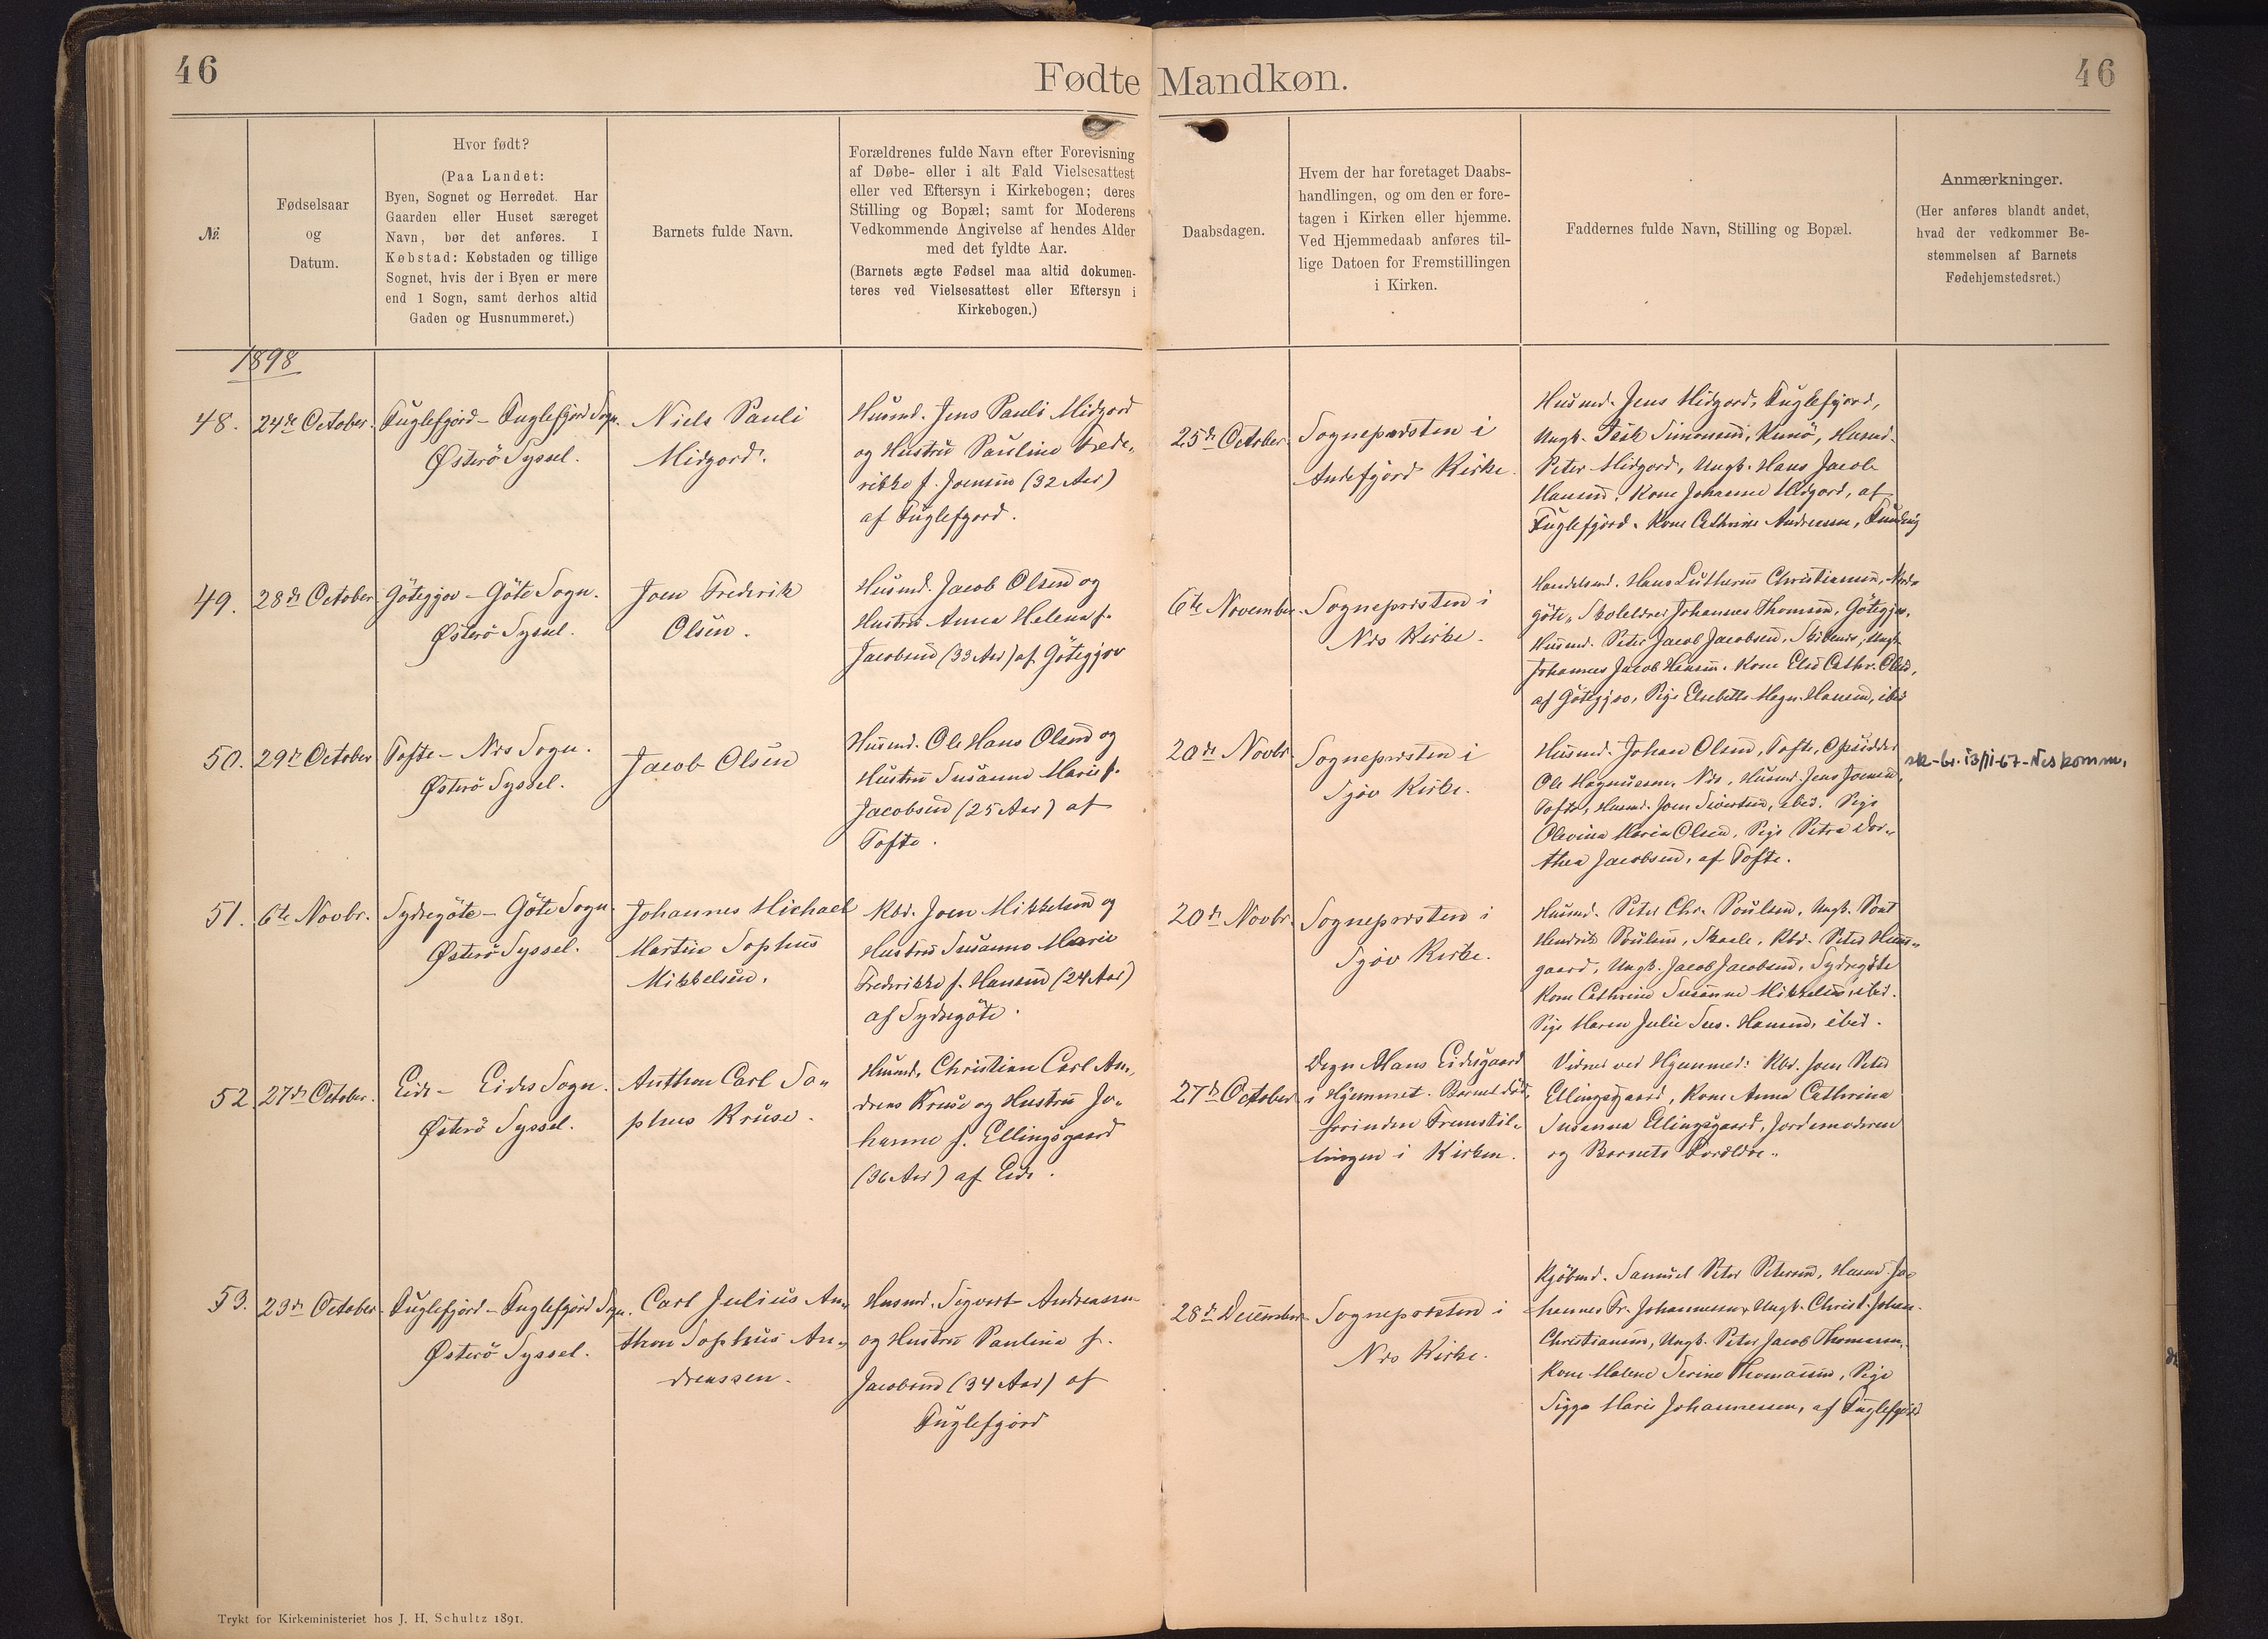 46
Fødte Mandkøn.
46
№
Fødselsaar
og
Datum.
Hvor født?
(Paa Landet:
Byen, Sognet og Herredet. Har
Gaarden eller Huset særeget
Navn, bør det anføres. I
Købstad: Købstaden og tillige
Sognet, hvis der i Byen er mere
end 1 Sogn, samt derhos altid
Gaden og Husnummeret.)
Barnets fulde Navn.
Forældrenes fulde Navn efter Forevisning
af Døbe- eller i alt Fald Vielsesattest
eller ved Eftersyn i Kirkebogen; deres
Stilling og Bopæl; samt for Moderens
Vedkommende Angivelse af hendes Alder
med det fyldte Aar.
(Barnets ægte Fødsel maa altid dokumen-
teres ved Vielsesattest eller Eftersyn i
Kirkebogen.)
Daabsdagen.
Hvem der har foretaget Daabs-
handlingen, og om den er fore-
tagen i Kirken eller hjemme.
Ved Hjemmedaab anføres til-
lige Datoen for Fremstillingen
i Kirken.
Faddernes fulde Navn, Stilling og Bopæl.
Anmærkninger.
(Her anføres blandt andet,
hvad der vedkommer Be-
stemmelsen af Barnets
Fødehjemstedsret.)
1898
48.
24de October.
Fuglefjord - Fuglefjord Sogn.
Østerö Syssel.
Niels Pauli
Midgord.
Husmd. Jens Pauli Midgord
og Hustru Pauline Frede-
rikke f. Joensen (32 Aar)
af Fuglefjord.
25de October.
Sognepræsten i
Andefjord Kirke.
Husmd. Jens Midgord, Fuglefjord,
Ungk. Simonsen, Kunö, Husmd.
Peter Midgord, Ungk. Hans Jacob
Hansen, Kone Johanne Midgord, af
Fuglefjord. Kone Cathrine Andreasen, Funding
49.
28de October
Götegjov - Göte Sogn.
Østerö Syssel.
Joen Frederik
Olsen.
Husmd. Jacob Olsen og
Hustru Anna Helena f.
Jacobsen (33 Aar) af Götegjov
6te November.
Sognepræsten i
Næs Kirke.
Handelsmd. Hans Lutherus Christiansen, Nordre
göte, Skolelærer Johannes Thomsen, Götegjov,
Husmd. Peter Jacob Jacobsen, Ungk.
Johannes Jacob Hansen, Kone Else Cathr. Olsen,
af Götegjov, Pige Elsebette Magn. Hansen, ibid
50.
29de October
Tofte - Næs Sogn.
Østerö Syssel.
Jacob Olsen
Husmd. Ole Hans Olsen og
Hustru Susanne Marie f.
Jacobsen (25 Aar) af
Tofte.
20de Novbr.
Sognepræsten i
Gjov Kirke.
Husmd. Johan Olsen, Tofte, Opsidder
Ole Magnussen, Næs, Husmd. Jens Joensen,
Tofte, Husmd. Joen Sivertsen, ibid. Pige
Olevina Maria Olsen, Pige Petra Dor-
thea Jacobsen, af Tofte.
13/11-67 - Nes komm.
51.
6te Novbr.
Sydregöte - Göte Sogn.
Østerö Syssel.
Johannes Michael
Martin Sophus
Mikkelsen.
Kbd. Joen Mikkelsen og
Hustru Susanne Marie
Frederikke f. Hansen (24 Aar)
af Sydregöte.
20de Novbr.
Sognepræsten i
Gjov Kirke.
Husmd. Peter Chr. Poulsen, Ungk. Poul
Hendrik Poulsen, Skaale, Kbd. Peter
gaard, Ungk. Jacob Jacobsen, Sydregöte
Kone Cathrine Susanne Mikkelsen, ibid.
Pige Maren Julie Sus. Hansen, ibid.
52.
27de October.
Eide - Eides Sogn.
Østerö Syssel.
Anthon Carl So-
phus Kruse.
Husmd. Christian Carl An-
dreas Kruse og Hustru Jo-
hanne f. Ellingsgaard
(36 Aar) af Eide.
27de October
Degn Hans Eidesgaard
i Hjemmet. Barnet död
forinden Fremstil-
lingen i Kirken.
Vidner ved Hjemmed: Kbd. Joen Peter
Ellingsgaard, Kone Anna Cathrina
Susanna Ellingsgaard, Jordemoderen
og Barnets Forældre.
53.
23de October
Fuglefjord - Fuglefjord Sogn.
Østerö Syssel.
Carl Julius An-
thon Sophus An-
dreassen.
Husmd. Sigvert Andreasen
og Hustru Paulina f.
Jacobsen (34 Aar) af
Fuglefjord
28de December
Sognepræsten i
Næs Kirke.
Kjöbmd. Samuel Peter Petersen, Husmd. Jo-
hannes Fr. Johannesen, Ungk. Christ. Johan.
Christiansen, Ungk. Peter Jacob Thomasen,
Kone Malene Serine Thomasen, Pige
Sigga Marie Johannesen, af Fuglefjord
Trykt for Kirkeministeriet hos J. H. Schultz 1891.